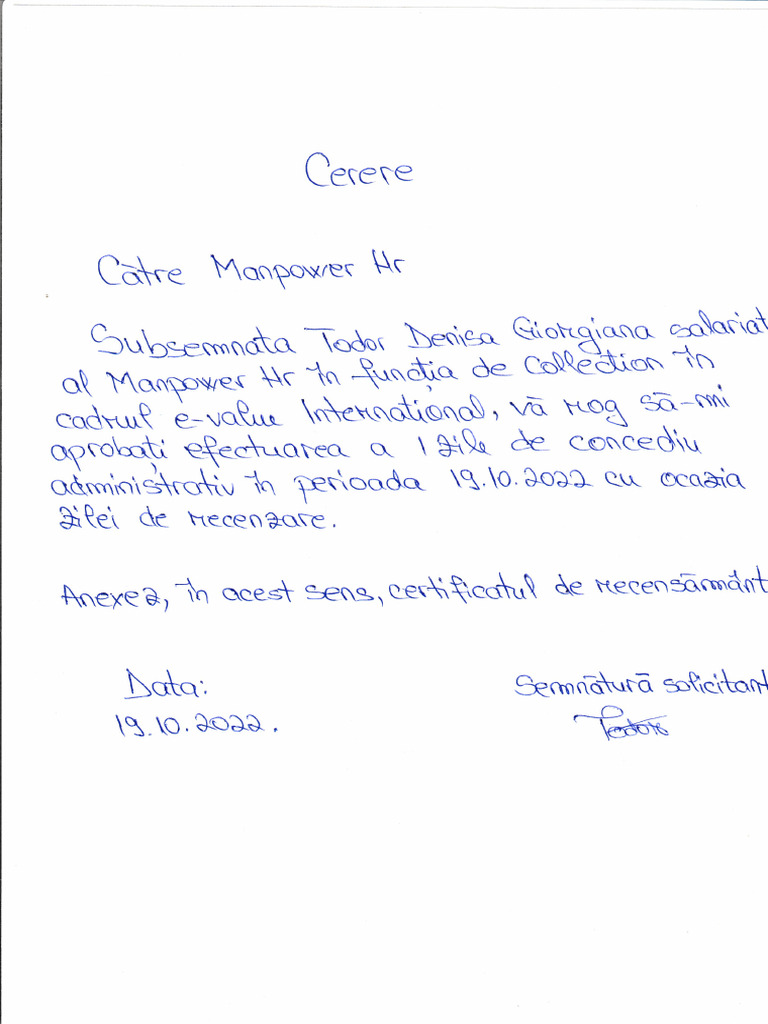 Cerere
Către Manpower Hr
Subsemnata Todor Denisa Giorgiana salariat
al Manpower Hr în funcția de Collection în
cadrul e-value International, vă rog să-mi
aprobați efectuarea a 1 zile de concediu
administrativ în perioada 19.10.2022 cu ocazia
zilei de recenzare.
Anexez, în acest sens, certificatul de recensărmânt
Data:
Semnătură solicitant
19.10.2022.
Todor